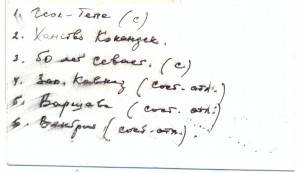 1. Геок-Тепе (с)
2. Ханство Кокандск.
3. 50 лет севаст. (с)
4. Зап. Кавказ (сост. отл.)
5. Варшава (сост. отл.)
6. Венгрия (сост. отл.)